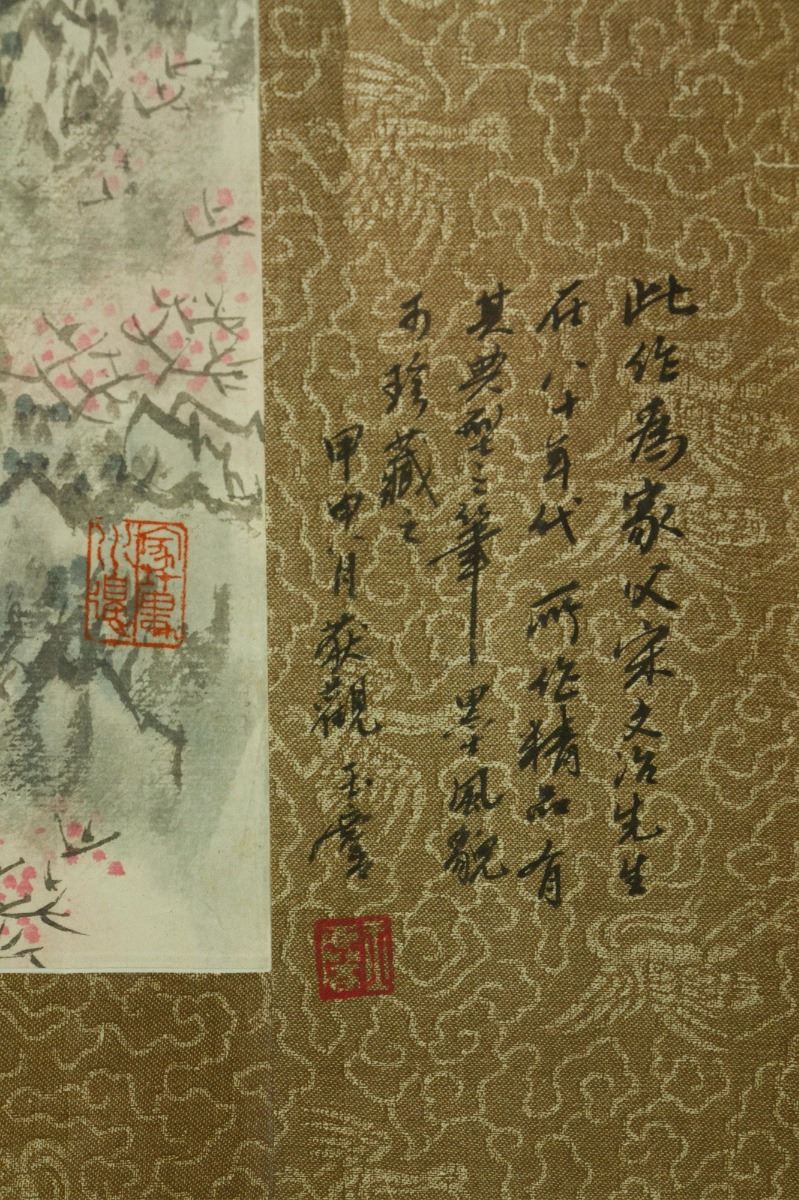 此作為家父宋文治先生
在八十年代所作精品有
其典型之筆墨風貌
可珍藏之
甲申八月获觀玉麐